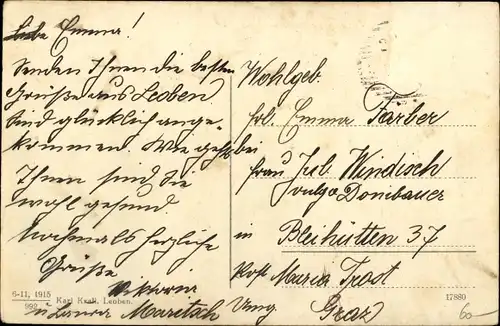 Liebe Emma!
Senden Ihnen die besten
Grüße aus Leoben
Sind glücklich ange-
kommen. Wie geht bei
Ihnen sind Sie
wohl gesund.
Nochmals herzliche
Grüße
Maritsch
Wohlgeb.
Frl. Emma Farber
bei
Frau Jul. Windisch
vulgo Dombauer
in Bleihütten 37
Post Maria Trost
Umg. Graz
6-11, 1915
992 Karl Krall, Leoben.
17880
60